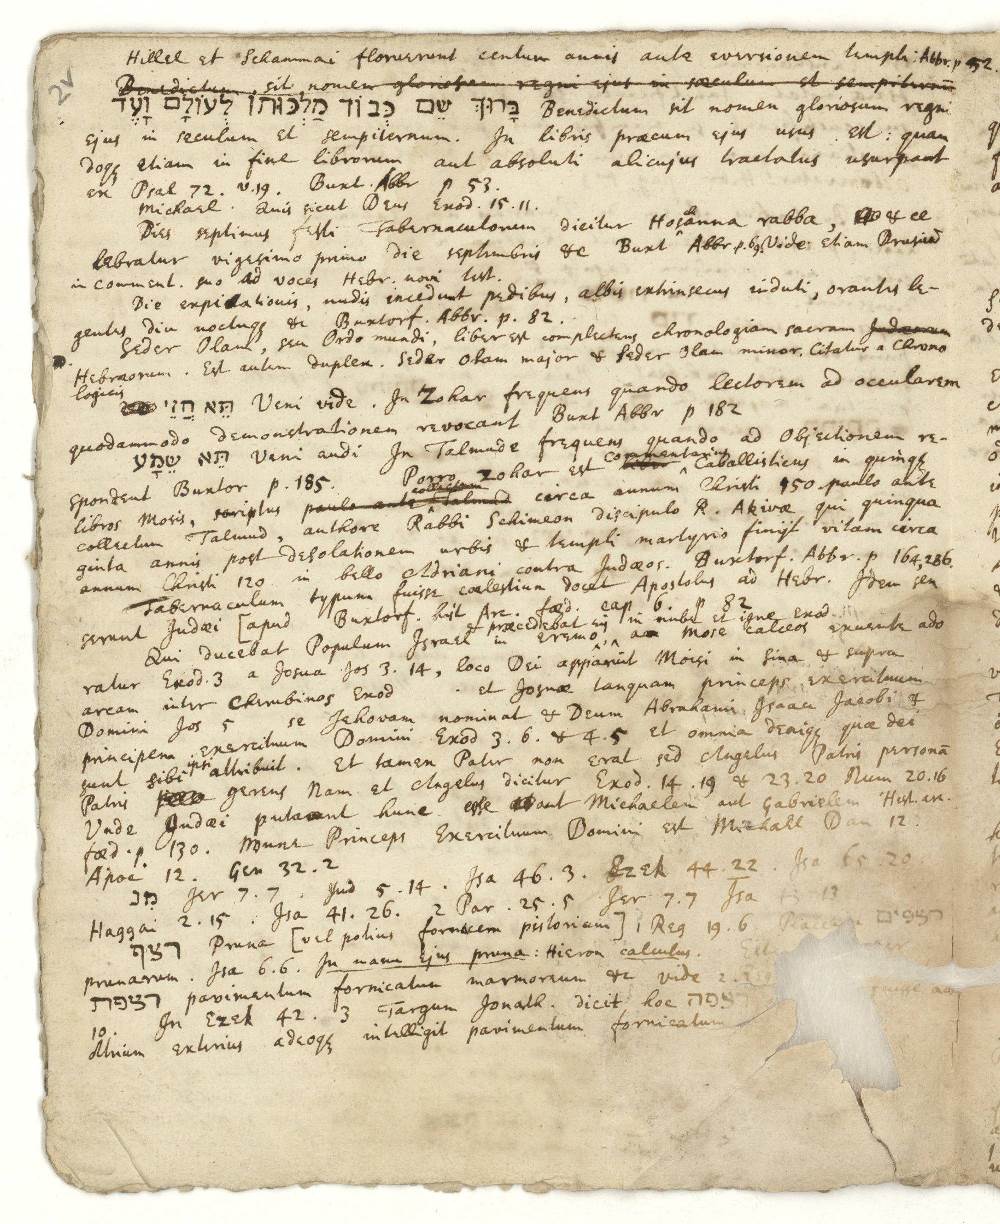 2v
Hillel et Schammai floruerunt centum annis ante eversionem templi. Abbr. p 52.
Benedictum, sit, nomen gloriosum regni ejus in sæculum et sempiternũ
בָּרוּךְ שֵׁם כְּבוֹד מַלְכוּתוֹ לְעוֹלָם וָעֶד Benedictum sit nomen gloriosum regni
ejus in sæculum et sempiternum. In libris præcum ejus usus est: quan
doqȝ etiam in fine librorum aut absoluti alicujus tractatus usurpant
ex Psal 72. v.19. Buxt. Abbr p 53.
Michael. Quis sicut Deus Exod. 15.11.
Dies septimus festi Tabernaculorum dicitur Hosanna rabba, & ce
lebratur vigesimo primo die septembris &c Buxt Abbr. p. 69. Vide etiam Drusiũ
in comment. suo ad voces Hebr. novi test.
Die expiationis, nudis incedunt pedibus, albis extrinsecus induti, orantes le-
gentes diu noctuqȝ &c Buxtorf. Abbr. p. 82.
Seder Olam, seu Ordo mundi, liber est complectens chronologiam sacram Judæorum
Hebræorum. Est autem duplex. Seder Olam major & Seder Olam minor. Citatur a Chrono
logicis
תֵּא חֲזֵי Veni vide. In Zohar frequens quando lectorem ad occularem
quodammodo demonstrationem revocant Buxt Abbr p 182
תֵּא שְׁמָע Veni audi In Talmude frequens quando ad Objectionem re-
spondent Buxtor p. 185. Porro Zohar est commentarius Cabballisticus in quinqȝ
libros Mosis, scriptus paulo ante collectum Talmud circa annum Christi 150 paulo ante
collectum Talmud, authore Rabbi Schimeon discipulo R. Akivæ qui quinqua
ginta annis post desolationem urbis & templi martyrio finijt vitam circa
annum Christi 120 in bello Adriani contra Judæos. Buxtorf. Abbr. p 164, 286.
Tabernaculum typum fuisse cœlestium docet Apostolus ad Hebr. Idem sen
serunt Judæi [apud Buxtorf. hist Arc. fœd. cap 6. p 82
Qui ducebat Populum Israel in eremo, & præcedebat eis in nube et igne Exod. a Mose calceos exuente ado
ratur Exod. 3 a Josua Jos 3. 14, loco Dei apparuit Moisi in Sina & supra
arcam inter Cherubinos Exod . et Josuæ tanquam princeps exercituum
Domini Jos 5 se Jehovam nominat & Deum Abrahami Isaaci Jacobi &
principem exercituum Domini Exod 3. 6. & 4. 5 et omnia deniqȝ quæ dei
sunt sibi ipsi attribuit. Et tamen Pater non erat sed Angelus Patris personã
Patris gerens Nam et Angelus dicitur Exod. 14. 19 & 23. 20 Num 20.16
Unde Judæi putarunt hunc esse aut Michaelem aut Gabrielem Hist. arc.
fœd. p. 130. Princeps Exercituum Domini est Michael Dan 12.
Apoc 12. Gen 32. 2
מִנּ Jer 7. 7. Jud 5. 14. Isa 46. 3. Ezek 44. 22. Isa 65. 20.
Haggai 2. 15. Isa 41. 26. 2 Par. 25. 5 Jer 7. 7 Isa 13
רצף Pruna [vel potius fornacem pistoriam] 1 Reg 19. 6 רצפים
prunarum. Isa 6. 6. In manu ejus pruna: Hieron calculus.
רצפת pavimentum fornicatum marmoreum &c vide 2. Reg
10. In Ezek 42. 3 Targum Jonath. dicit hoc רצפה
Atrium exterius adeoqȝ intelligit pavimentum fornicatum